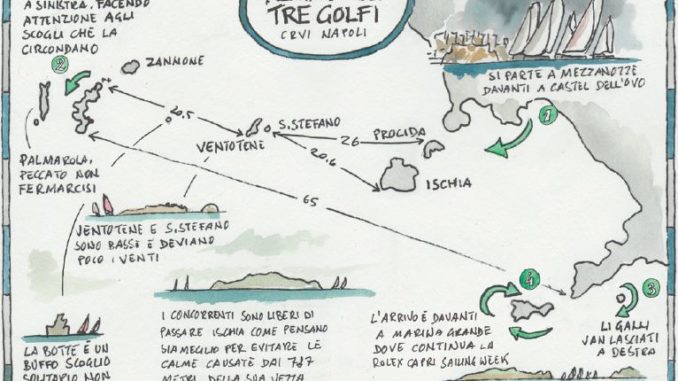 A SINISTRA, FACENDO
ATTENZIONE AGLI
SCOGLI CHE LA
CIRCONDANO
TRE GOLFI
CRVI NAPOLI
SI PARTE A MEZZANOTTE
DAVANTI A CASTEL DELL'OVO
2
ZANNONE
1
20.5
VENTOTENE
S.STEFANO
26
PROCIDA
20.6
ISCHIA
PALMAROLA,
PECCATO NON
FERMARCISI
65
VENTOTENE E S.STEFANO
SONO BASSI E DEVIANO
POCO I VENTI
4
3
I CONCORRENTI SONO LIBERI DI
PASSARE ISCHIA COME PENSANO
SIA MEGLIO PER EVITARE LE
CALME CAUSATE DAI 787
METRI DELLA SUA VETTA
L'ARRIVO È DAVANTI
A MARINA GRANDE
DOVE CONTINUA LA
ROLEX CAPRI SAILING WEEK
LI GALLI
VAN LASCIATI
A DESTRA
LA BOTTE È UN
BUFFO SCOGLIO
SOLITARIO NON